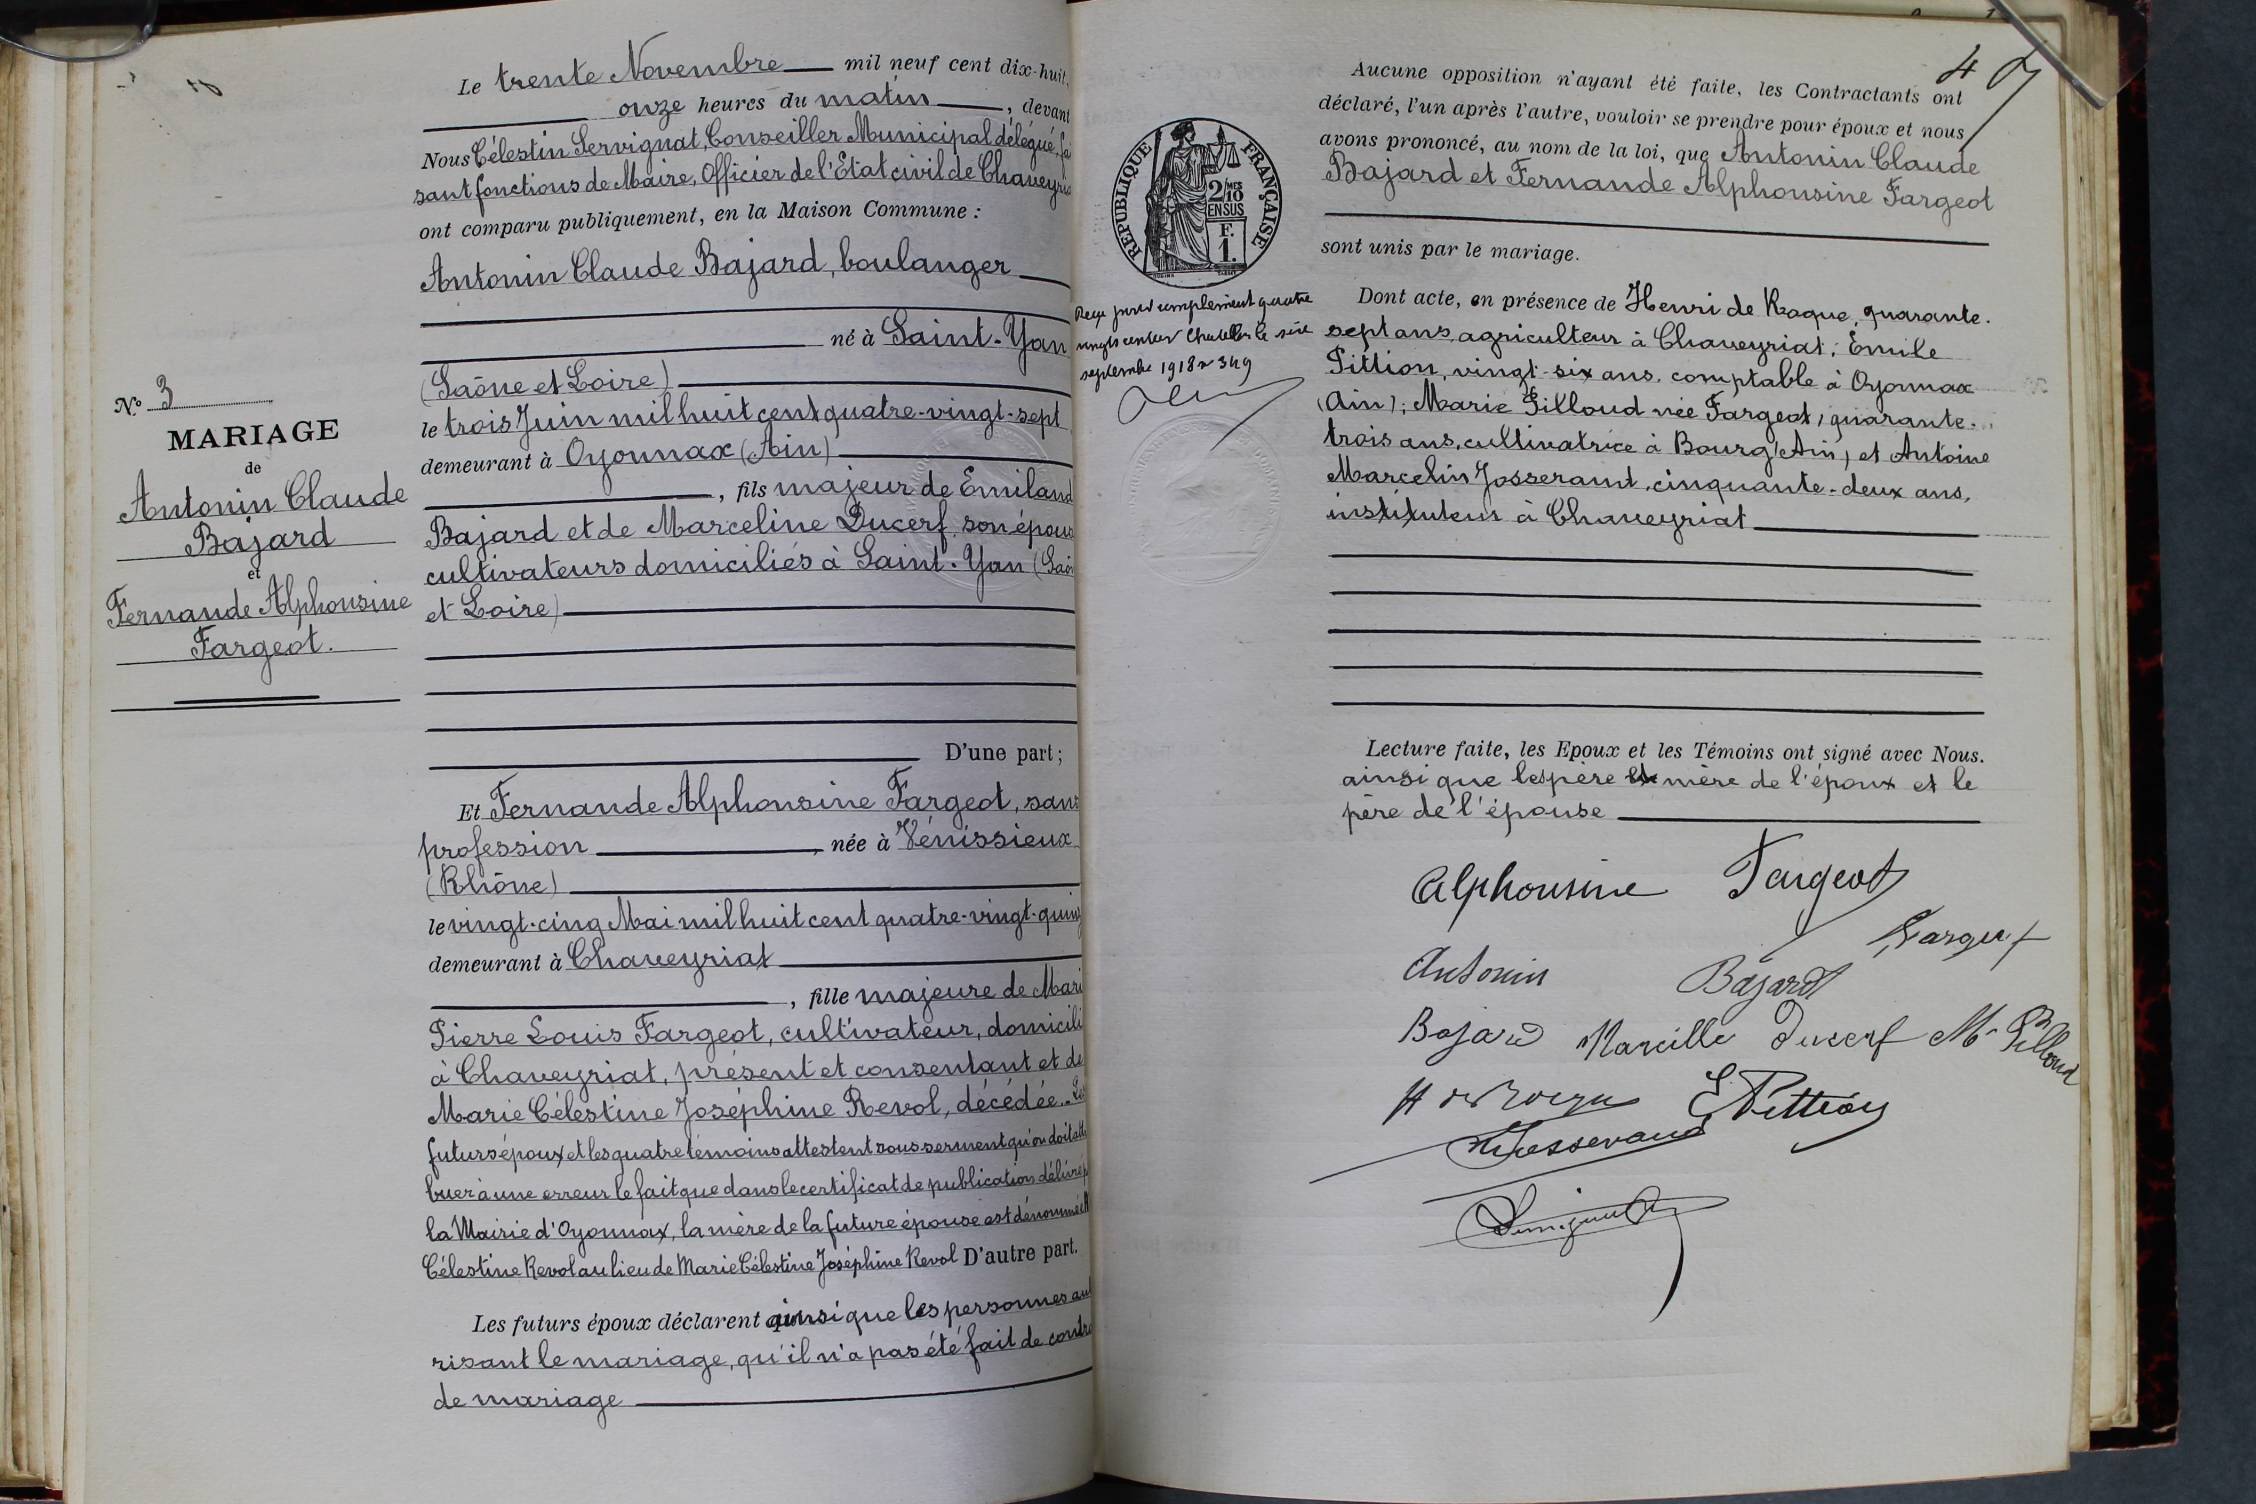 Le trente Novembre mil neuf cent dix-huit,
onze heures du matin, devant
Nous Célestin Servignat, Conseiller Municipal délégué, fai
sant fonctions de Maire, Officier de l'Etat civil de Chaveyriat
ont comparu publiquement, en la Maison Commune :
Antonin Claude Bajard, boulanger
né à Saint-Yan
(Saône et Loire)
le trois Juin mil huit cent quatre-vingt-sept
demeurant à Oyonnax (Ain)
, fils majeur de Emiland
Bajard et de Marceline Ducerf, son épouse
cultivateurs domiciliés à Saint-Yan (Saô
et Loire)
D'une part ;
Et Fernande Alphonsine Fargeot, sans
profession, née à Vénissieux
(Rhône)
le vingt-cinq Mai mil huit cent quatre-vingt-quinz
demeurant à Chaveyriat
, fille majeure de Mari
Pierre Louis Fargeot, cultivateur, domicili
à Chaveyriat, présent et consentant et de
Marie Célestine Joséphine Revol, décédée. Les
futurs époux et les quatre témoins attestent sous serment qu'on doit attri
buer à une erreur le fait que dans le certificat de publication délivré p
la Mairie d'Oyonnax, la mère de la future épouse est dénommée
Célestine Revol au lieu de Marie Célestine Joséphine Revol D'autre part.
Les futurs époux déclarent ainsi que les personnes au
risant le mariage, qu'il n'a pas été fait de contra
de mariage
N.º 3
MARIAGE
de
Antonin Claude
Bajard
et
Fernande Alphonsine
Fargeot.
4
RÉPUBLIQUE FRANÇAISE
2/10 MES
EN SUS
F.
1.
Reçu pour complément quatre
vingts centimes Chatillon le six
septembre 1918 n 349
Aucune opposition n'ayant été faite, les Contractants ont
déclaré, l'un après l'autre, vouloir se prendre pour époux et nous
avons prononcé, au nom de la loi, que Antonin Claude
Bajard et Fernande Alphonsine Fargeot
sont unis par le mariage.
Dont acte, en présence de Henri de Roque, quarante-
sept ans, agriculteur à Chaveyriat; Emile
Pittion, vingt-six ans, comptable à Oyonnax
(Ain); Marie Pilloud née Fargeot, quarante-
trois ans, cultivatrice à Bourg (Ain) et Antoine
Marcelin Josserand, cinquante-deux ans,
instituteur à Chaveyriat
Lecture faite, les Epoux et les Témoins ont signé avec Nous.
ainsi que les père et mère de l'époux et le
père de l'épouse
Alphonsine Fargeot
Fargeot
Antonin Bajard
Bajard Marcelle Ducerf M. Pilloud
H de Roque E Pittion
Josserand
Servignat